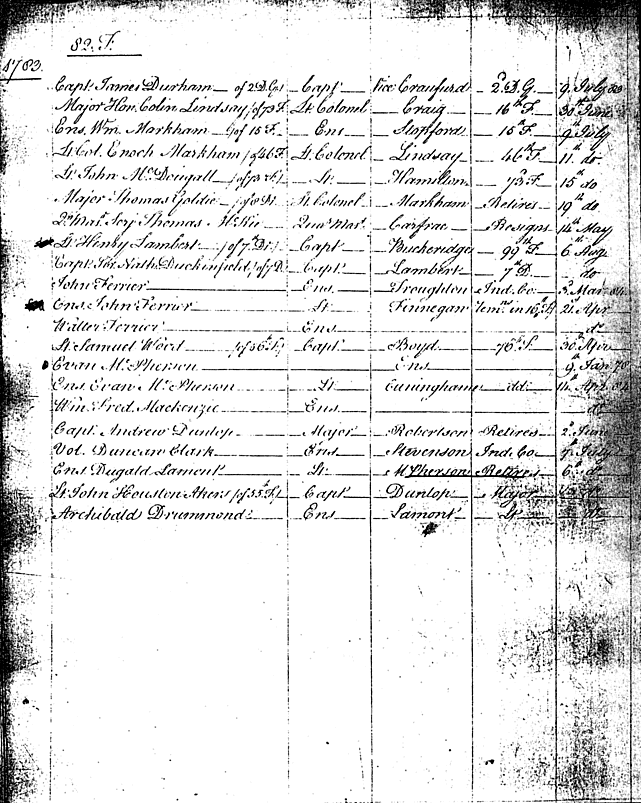 82. F.
1783.
Capt. James Durham of 2 D. Gs Capt Vice Craufurd 2d D. G. 9. July
Major Hon. Colin Lindsay of 73 F. Lt. Colonel Craig 16th F. 30th June
Ens. Wm. Markham of 15 F. Ens Stopford 15th F. 9 July
Lt Col. Enoch Markham of 46 F. Lt. Colonel Lindsay 46th F. 11th do
Lt John McDougall of 73 F. Lt Hamilton 73d F. 15th do
Major Thomas Goldie Lt Colonel Markham Retires 19th do
Qr Masr Serj Thomas McKie Quar Mast. Carfrae Resigns 14th May
Lt Henry Lambert of 7 Dr Capt Bucheridge 99th F. 6th Aug
Capt Sir Nath Duckinfield of 7 D Capt Lambert 7th D. do
John Ferrier Ens Troughton Ind. Co. 3d Mar 84
Ens John Ferrier Lt Finnegan 21st Apr
Walter Ferrier Ens do
Lt Samuel Wood of 56 F Capt Boyd 76th F. 30th Apr
Evan McPherson Ens 9 Jan
Ens Evan McPherson Lt Cuninghame dd. 14 Apr 84
Wm. Fred. Mackenzie Ens do
Capt. Andrew Dunlop Major Robertson Retires 2d June
Vol. Duncan Clark Ens Stevenson Ind. Co 7th July
Ens Dugald Lamont Lt McPherson Retires 6th do
Lt John Houston Akers of 55 F Capt Dunlop Major do
Archibald Drummond Ens Lamont Lt do